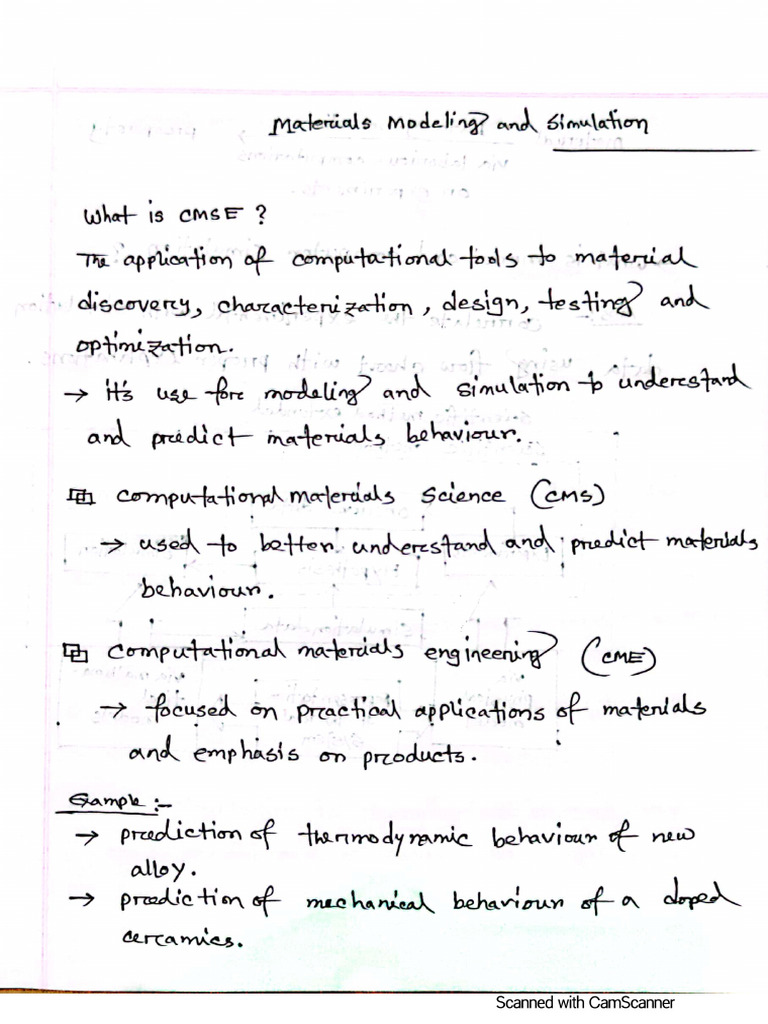 Materials Modeling and Simulation
What is CMSE ?
The application of computational tools to material
discovery, characterization, design, testing and
optimization.
→ it's use for modeling and simulation to understand
and predict materials behaviour.
Computational materials Science (CMS)
→ used to better understand and predict materials
behaviour.
Computational materials engineering (CME)
→ focused on practical applications of materials
and emphasis on products.
Example :-
→ prediction of thermodynamic behaviour of new
alloy.
→ prediction of mechanical behaviour of a doped
ceramics.
Scanned with CamScanner